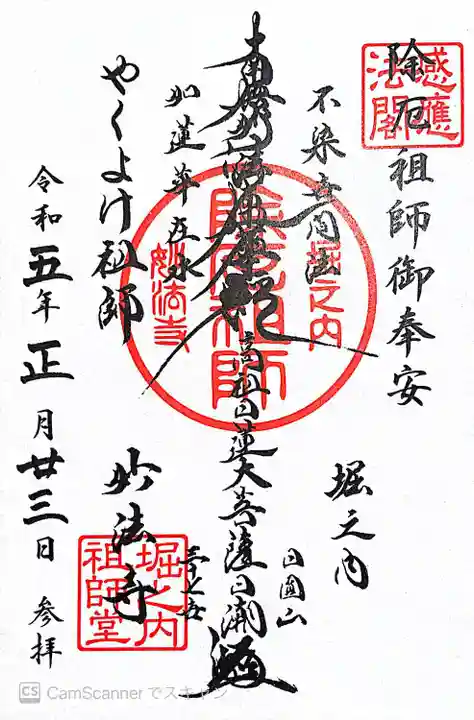 除厄祖師御奉安
感應
法閣
堀之内
不染世間法
南無妙法蓮華経
高祖日蓮大菩薩
如蓮華在水
除厄祖師
堀之内
妙法寺
やくよけ祖師
日圓山
妙法寺
堀之内
祖師堂
令和五年正月廿三日 参拝
CS CamScanner でスキャン